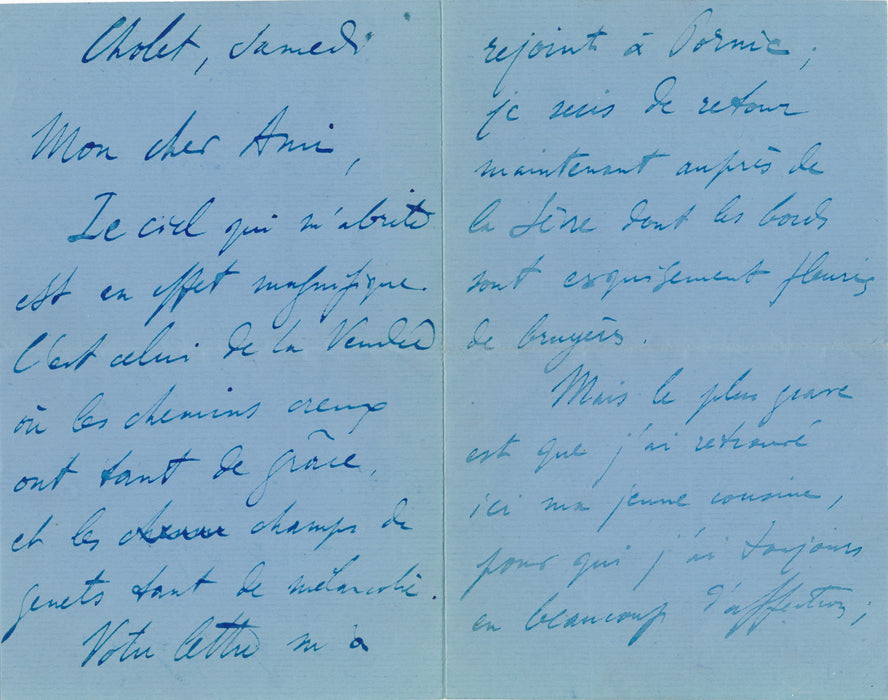 Cholet, Samedi
Mon cher Ami,
Le ciel qui m'abrite
est en effet magnifique.
C'est celui de la Vendée
où les chemins creux
ont tant de grâce,
et les champs de
genets tant de mélancolie.
Votre lettre m'a
rejoint à Pornic ;
je suis de retour
maintenant auprès de
la Sèvre dont les bords
sont exquisement fleuris
de bruyères.
Mais le plus grave
est que j'ai retrouvé
ici ma jeune cousine,
pour qui j'ai toujours
eu beaucoup d'affection ;